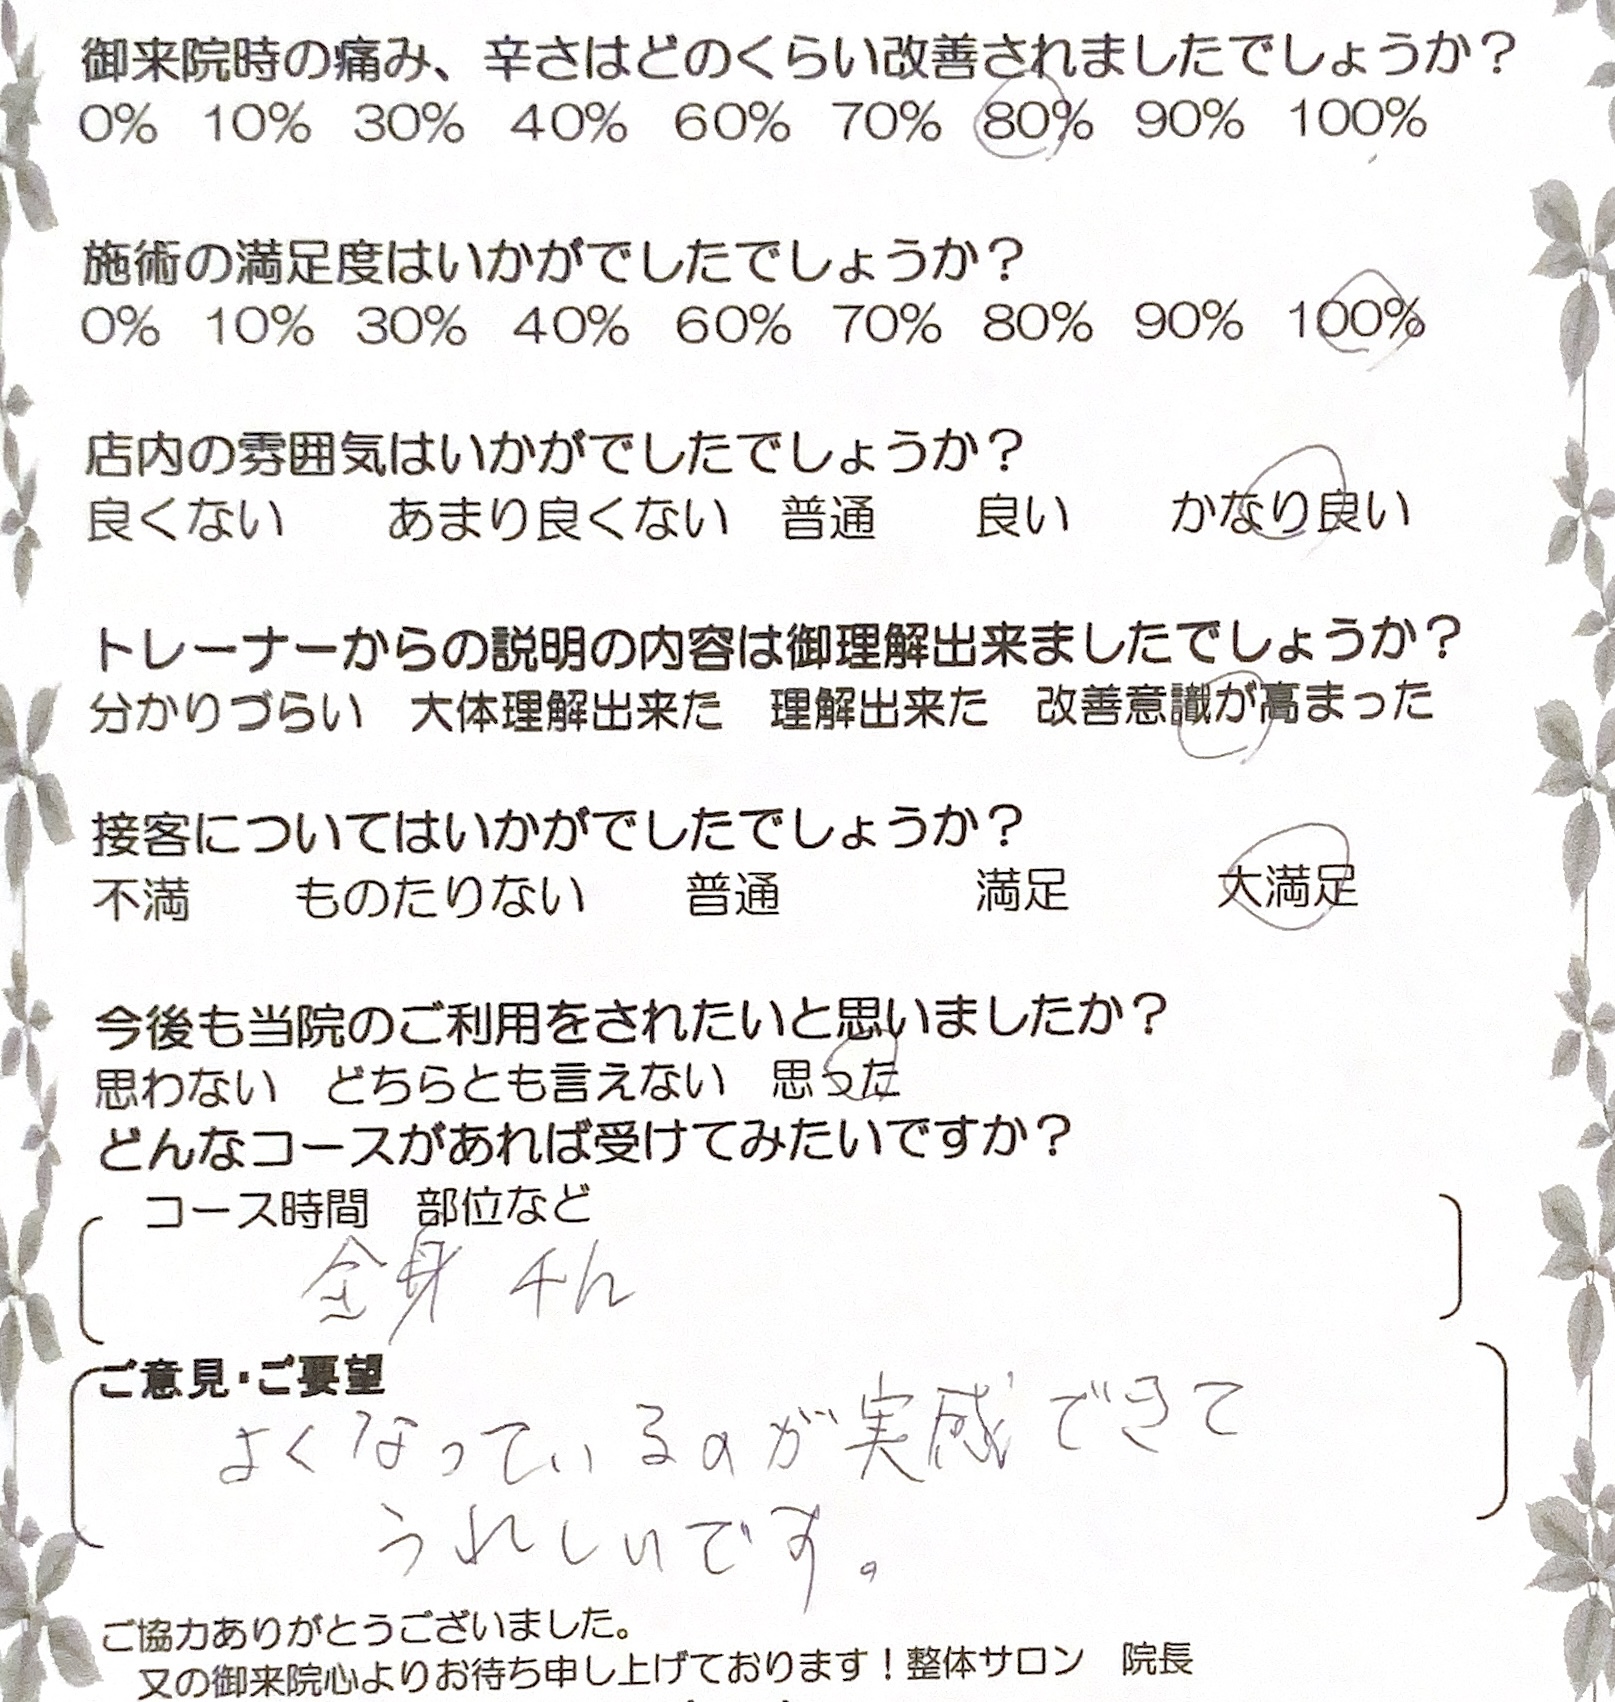 御来院時の痛み、辛さはどのくらい改善されましたでしょうか？
0% 10% 30% 40% 60% 70% 80% 90% 100%
施術の満足度はいかがでしたでしょうか？
0% 10% 30% 40% 60% 70% 80% 90% 100%
店内の雰囲気はいかがでしたでしょうか？
良くない あまり良くない 普通 良い かなり良い
トレーナーからの説明の内容は御理解出来ましたでしょうか？
分かりづらい 大体理解出来た 理解出来た 改善意識が高まった
接客についてはいかがでしたでしょうか？
不満 ものたりない 普通 満足 大満足
今後も当院のご利用をされたいと思いましたか？
思わない どちらとも言えない 思った
どんなコースがあれば受けてみたいですか？
コース時間 部位など
全身 4h
ご意見・ご要望
よくなっているのが実感できて
うれしいです。
ご協力ありがとうございました。
又の御来院心よりお待ち申し上げております！整体サロン 院長